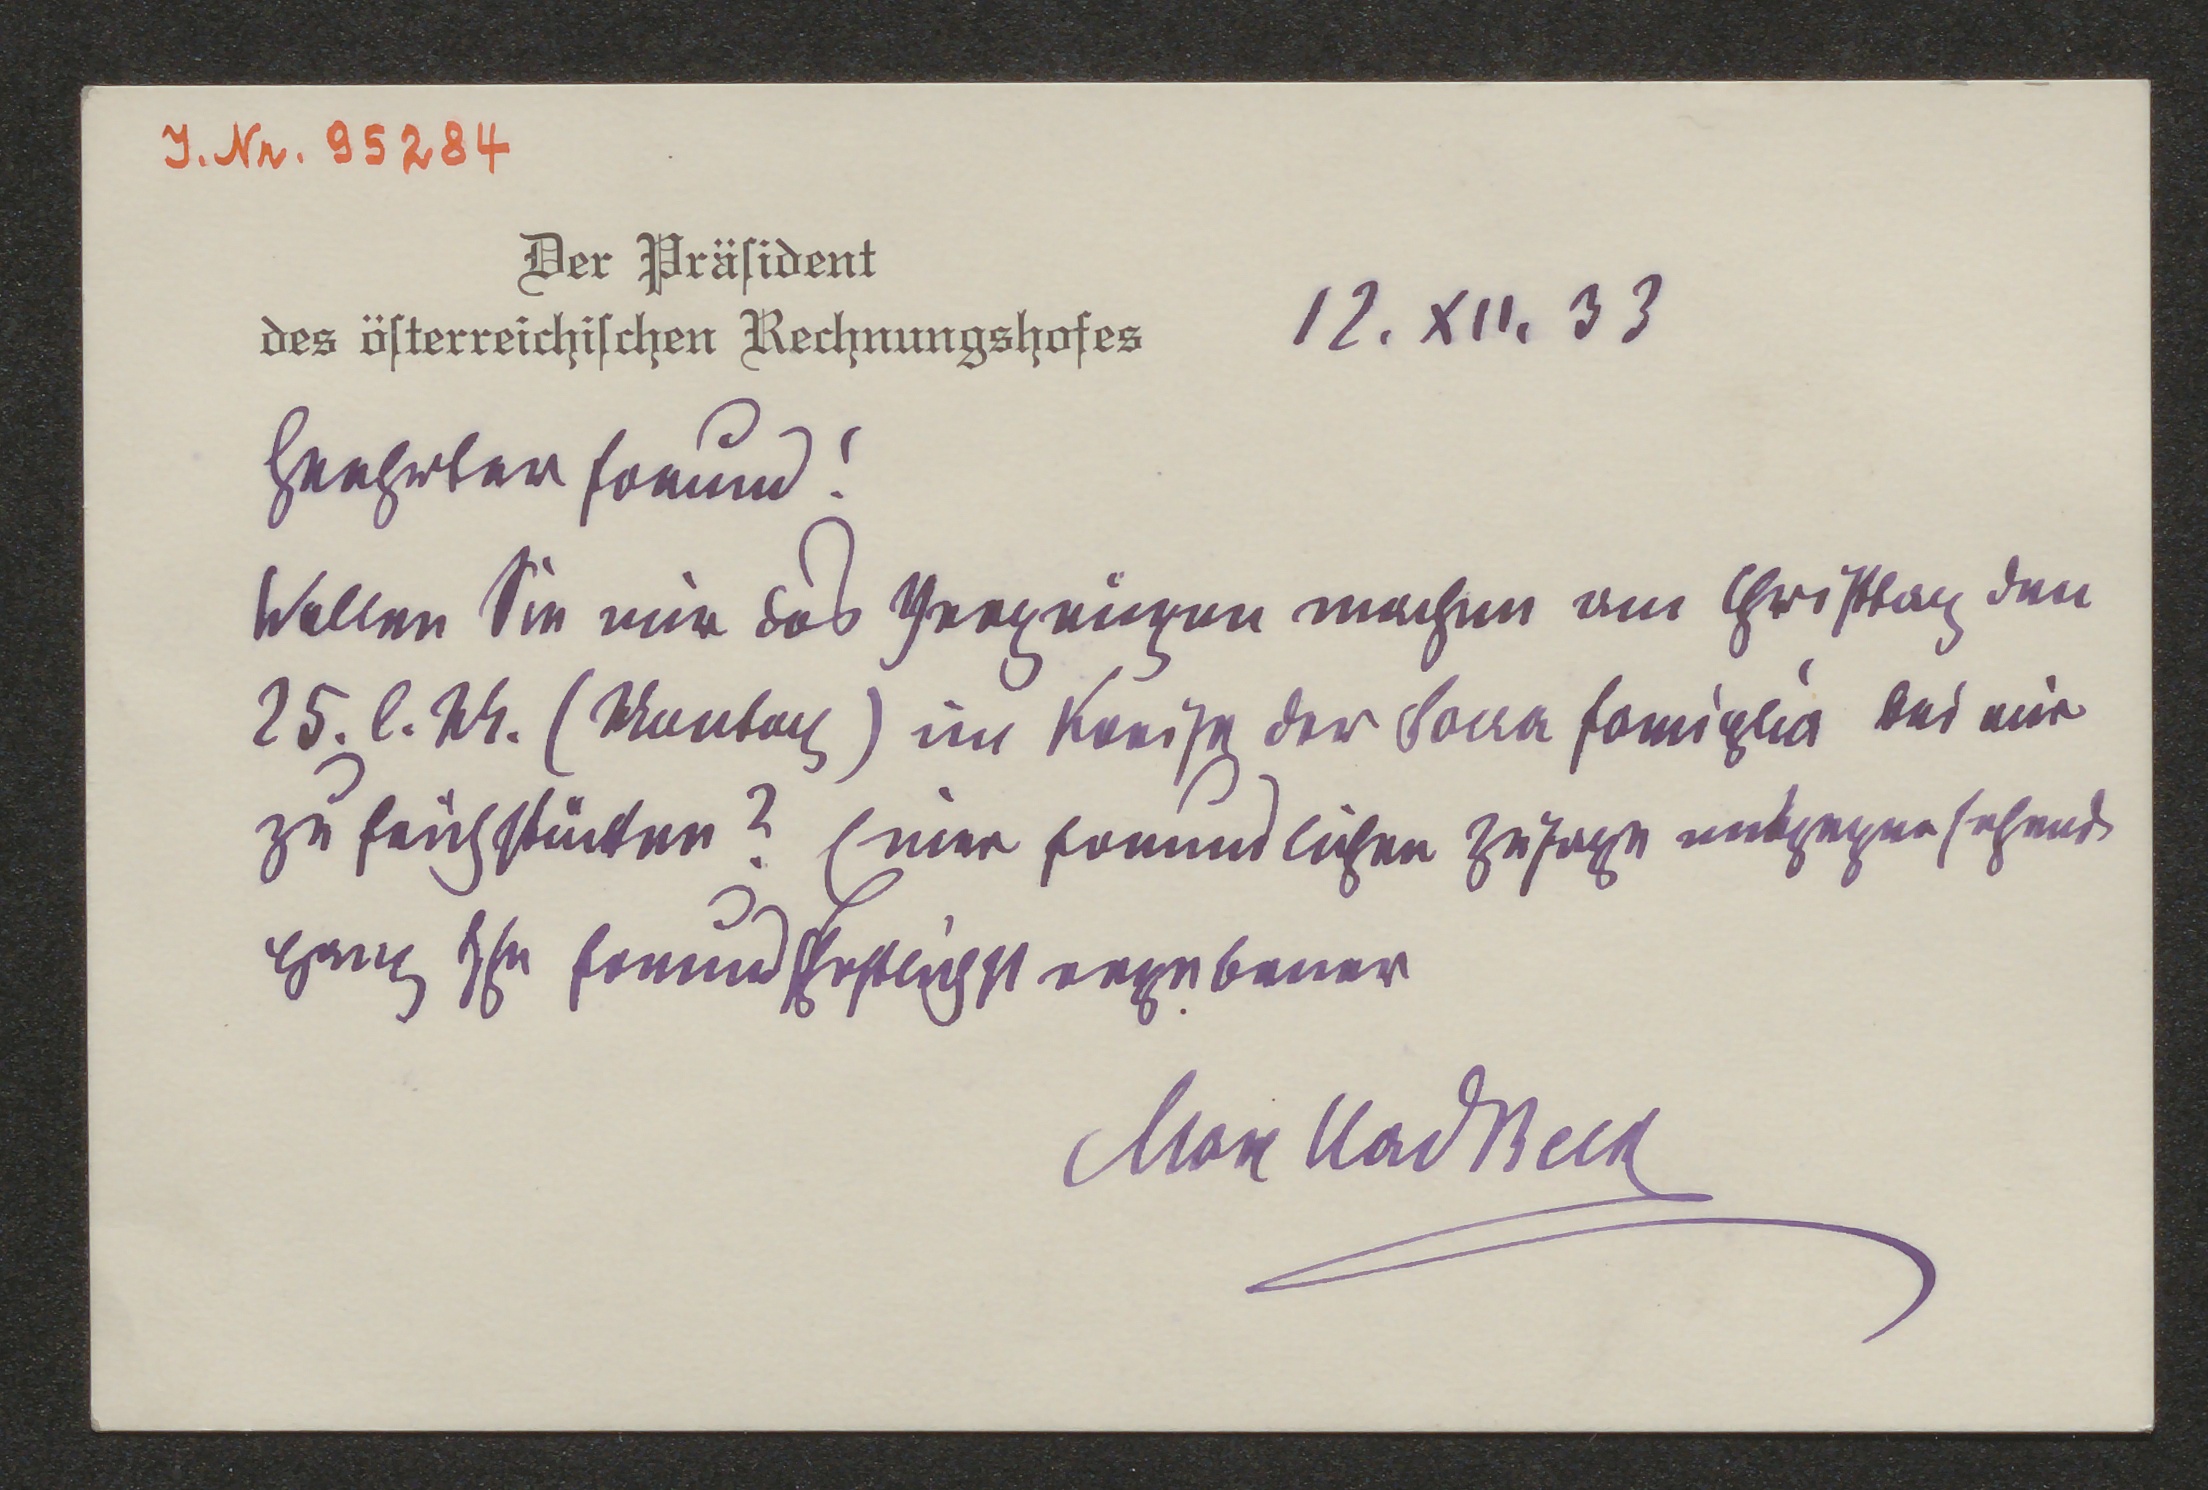 I. Nr. 95284
Der Präsident
des österreichischen Rechnungshofes
12. XII. 33
Geehrter Freund!
Wollen Sie mir das Vergnügen machen am Christtag den
25. l. M. (Montag) im Kreise der sacra famiglia bei mir
zu frühstücken? Einer freundlichen Zusage entgegensehend
ganz Ihr freundschaftlichst ergebener
Max Wlad Beck